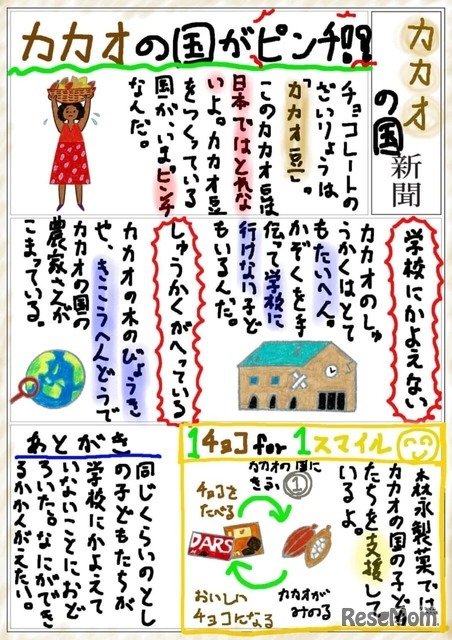 カカオの国新聞
カカオの国がピンチ!!
チョコレートの
ざいりょうは
「カカオ豆」。
このカカオ豆は
日本ではとれな
いよ。カカオ豆
をつくっている
国が、いまピンチ
なんだ。
学校にかよえない
カカオのしゅ
うかくはとて
もたいへん。
かぞくを手
伝って学校に
行けない子ど
もいるんだ。
しゅうかくがへっている
カカオの木のびょうき
や、きこうへんどうで
カカオの国の
農家さんが
こまっている。
1チョコ for 1スマイル
森永製菓では
カカオの国の子ども
たちを支援して
いるよ。
カカオの国に
きふ
1
チョコを
たべる
DARS
カカオが
みのる
おいしい
チョコになる
あとがき
同じくらいのとし
の子どもたちが
学校にかよえて
いないことにおど
ろいた。なにができ
るかかんがえたい。
ReseMom